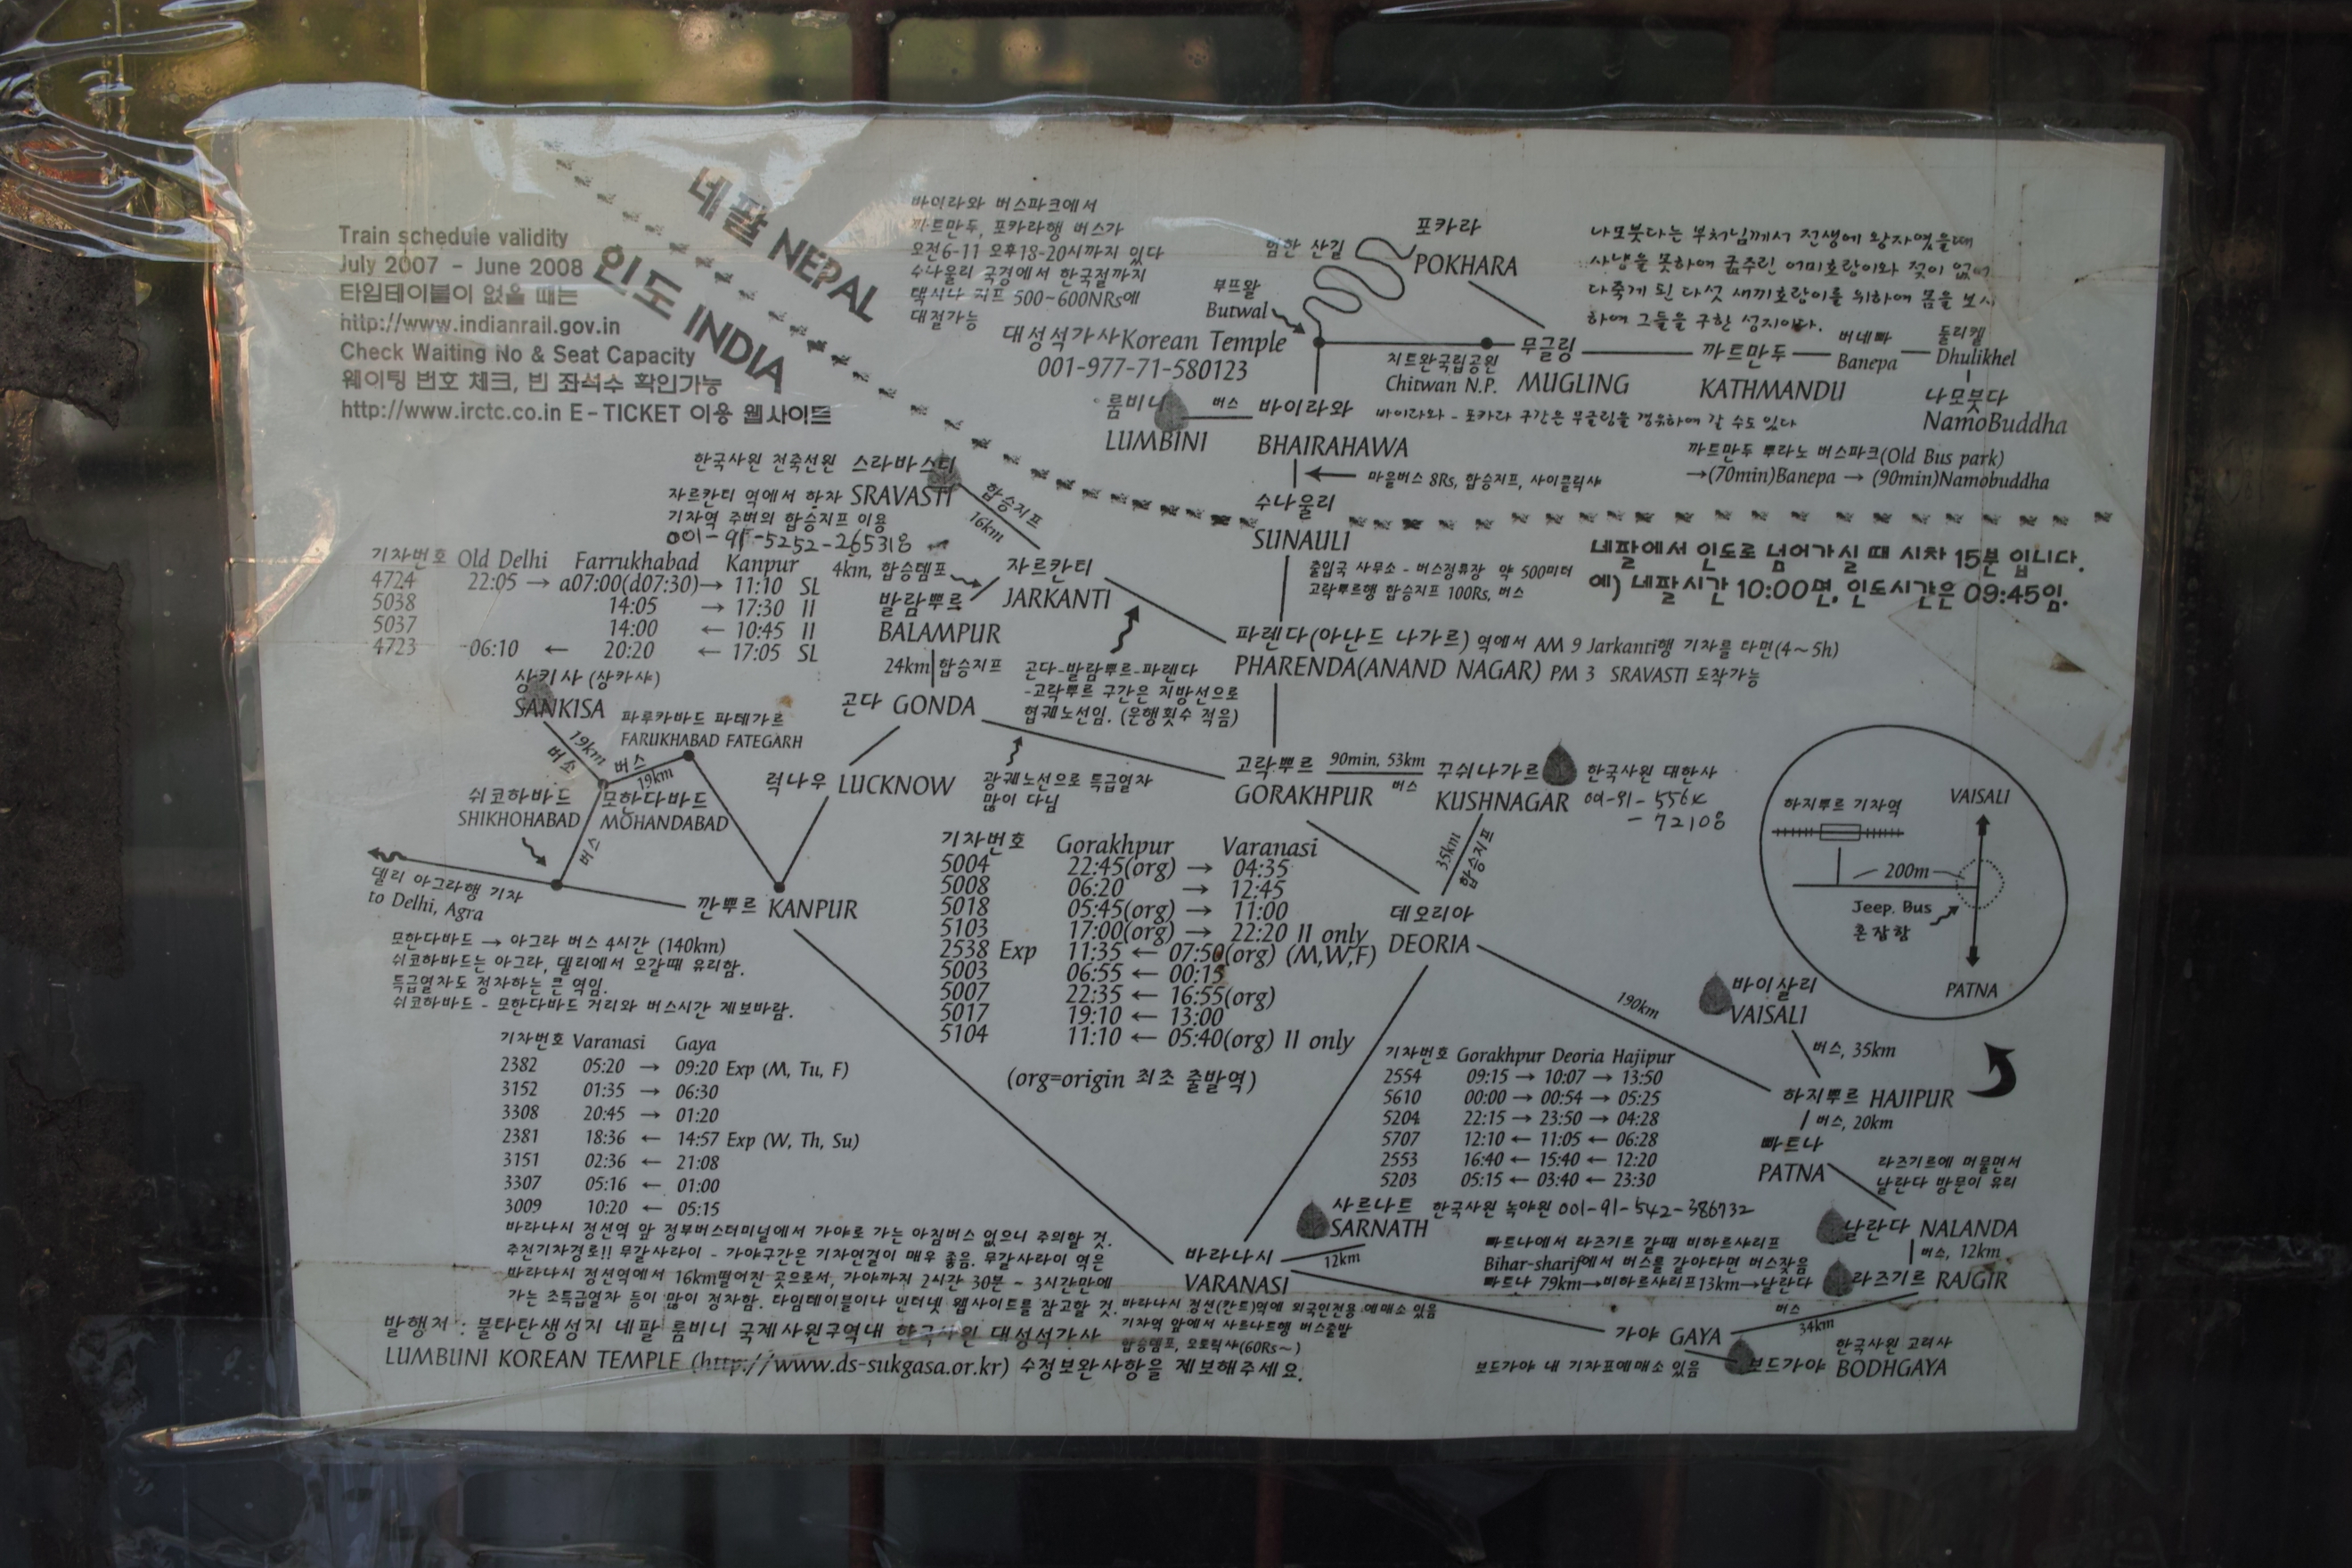 Train schedule validity
July 2007 - June 2008
타임테이블이 없을 때는
http://www.indianrail.gov.in
Check Waiting No & Seat Capacity
웨이팅 번호 체크, 빈 좌석수 확인가능
http://www.irctc.co.in E-TICKET 이용 웹사이트
네팔 NEPAL
인도 INDIA
바이라와 버스파크에서
카트만두, 포카라행 버스가
오전6-11 오후18-20시까지 있다
수나울리 국경에서 한국절까지
택시나 지프 500~600NRs에
대절가능
대성석가사Korean Temple
001-977-71-580123
험한 산길
포카라
POKHARA
부프왈
Butwal
나모붓다는 부처님께서 전생에 왕자였을때
사냥을 못하여 굶주린 어미호랑이와 젖이 없어
다죽게 된 다섯 새끼호랑이를 위하여 몸을 보시
하여 그들을 구한 성지이다.
치트완국립공원
Chitwan N.P.
무글링
MUGLING
까트만두
KATHMANDU
버네빠
Banepa
둘리켈
Dhulikhel
나모붓다
NamoBuddha
룸비니
LUMBINI
버스
바이라와
BHAIRAHAWA
바이라와 - 포카라 구간은 무글링을 경유하여 갈 수도 있다
까트만두 뿌라노 버스파크(Old Bus park)
→(70min)Banepa → (90min)Namobuddha
마을버스 8Rs, 합승지프, 사이클릭샤
수나울리
SUNAULI
출입국 사무소 - 버스정류장 약 500미터
고락뿌르행 합승지프 100Rs, 버스
네팔에서 인도로 넘어가실 때 시차 15분 입니다.
예) 네팔시간 10:00면, 인도시간은 09:45임.
한국사원 천축선원 스라바스티
자르칸티 역에서 하차 SRAVASTI
기차역 주변의 합승지프 이용
001-91-5252-265318
합승지프
16km
4km, 합승템포
자르칸티
JARKANTI
발람뿌르
BALAMPUR
24km 합승지프
기차번호 Old Delhi Farrukhabad Kanpur
4724 22:05 → a07:00(d07:30)→ 11:10 SL
5038 14:05 → 17:30 II
5037 14:00 ← 10:45 II
4723 06:10 ← 20:20 ← 17:05 SL
파렌다(아난드 나가르) 역에서 AM 9 Jarkanti행 기차를 타면(4~5h)
PHARENDA(ANAND NAGAR) PM 3 SRAVASTI 도착가능
곤다-발람뿌르-파렌다
-고락뿌르 구간은 지방선으로
협궤노선임. (운행횟수 적음)
곤다 GONDA
상키사 (상카샤)
SANKISA
파루카바드 파테가르
FARUKHABAD FATEGARH
19km
버스
버스
19km
쉬코하바드
SHIKHOHABAD
모한다바드
MOHANDABAD
버스
럭나우 LUCKNOW
광궤노선으로 특급열차
많이 다님
고락뿌르
GORAKHPUR
90min, 53km
버스
꾸쉬나가르
KUSHNAGAR
한국사원 대한사
35km
합승지프
데오리아
DEORIA
하지뿌르 기차역
VAISALI
200m
Jeep. Bus
혼잡함
PATNA
델리 아그라행 기차
to Delhi, Agra
깐뿌르 KANPUR
모한다바드 → 아그라 버스 4시간 (140km)
쉬코하바드는 아그라, 델리에서 오갈때 유리함.
특급열차도 정차하는 큰 역임.
쉬코하바드 - 모한다바드 거리와 버스시간 제보바람.
기차번호 Gorakhpur Varanasi
5004 22:45(org) → 04:35
5008 06:20 → 12:45
5018 05:45(org) → 11:00
5103 17:00(org) → 22:20 II only
2538 Exp 11:35 ← 07:50(org) (M,W,F)
5003 06:55 ← 00:15
5007 22:35 ← 16:55(org)
5017 19:10 ← 13:00
5104 11:10 ← 05:40(org) II only
(org=origin 최초 출발역)
190km
바이샬리
VAISALI
버스, 35km
하지뿌르 HAJIPUR
버스, 20km
빠트나
PATNA
기차번호 Varanasi Gaya
2382 05:20 → 09:20 Exp (M, Tu, F)
3152 01:35 → 06:30
3308 20:45 → 01:20
2381 18:36 ← 14:57 Exp (W, Th, Su)
3151 02:36 ← 21:08
3307 05:16 ← 01:00
3009 10:20 ← 05:15
기차번호 Gorakhpur Deoria Hajipur
2554 09:15 → 10:07 → 13:50
5610 00:00 → 00:54 → 05:25
5204 22:15 → 23:50 → 04:28
5707 12:10 ← 11:05 ← 06:28
2553 16:40 ← 15:40 ← 12:20
5203 05:15 ← 03:40 ← 23:30
라즈기르에 머물면서
날란다 방문이 유리
사르나트 한국사원 녹야원 001-91-542-386732
SARNATH
12km
날란다 NALANDA
버스, 12km
라즈기르 RAJGIR
빠트나에서 라즈기르 갈때 비하르샤리프
Bihar-sharif에서 버스를 갈아타면 버스잦음
빠트나 79km→비하르샤리프13km→날란다
바라나시
VARANASI
바라나시 정션역 앞 정부버스터미널에서 가야로 가는 아침버스 없으니 주의할 것.
추천기차경로!! 무갈사라이 - 가야구간은 기차연결이 매우 좋음. 무갈사라이 역은
바라나시 정션역에서 16km떨어진 곳으로서, 가야까지 2시간 30분 ~ 3시간만에
가는 초특급열차 등이 많이 정차함. 타임테이블이나 인터넷 웹사이트를 참고할 것.
바라나시 정션(칸트)역에 외국인전용 예매소 있음
기차역 앞에서 사르나트행 버스출발
합승템포, 오토릭샤(60Rs~)
버스
34km
가야 GAYA
한국사원 고려사
보드가야 BODHGAYA
보드가야 내 기차표예매소 있음
발행처 : 불타탄생성지 네팔 룸비니 국제사원구역내 한국사원 대성석가사
LUMBUNI KOREAN TEMPLE (http://www.ds-sukgasa.or.kr) 수정보완사항을 제보해주세요.